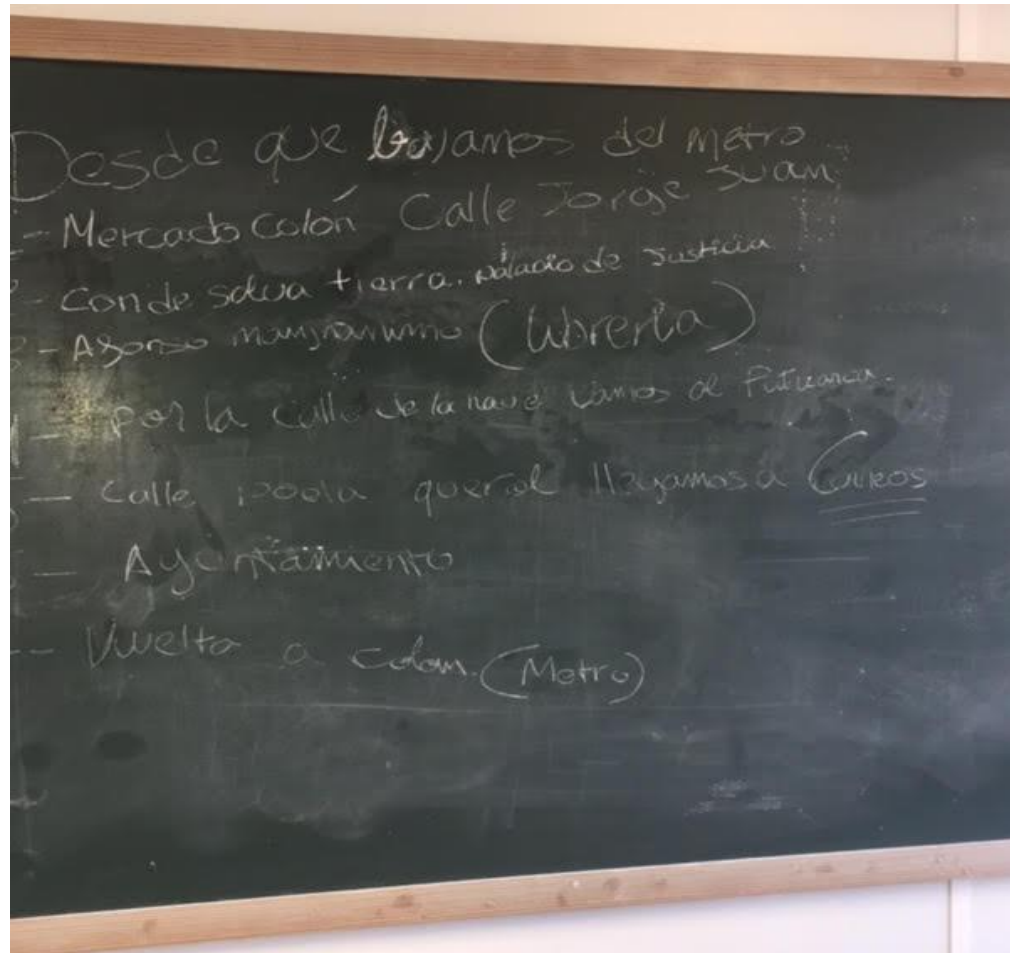 Desde que bajamos del metro
- Mercado Colón Calle Jorge Juan
- Conde salva tierra. palacio de Justicia
- (librería)
- por la calle de la nave vamos al
- calle poola querol llegamos a Correos
- Ayuntamiento
- Vuelta a colom. (Metro)